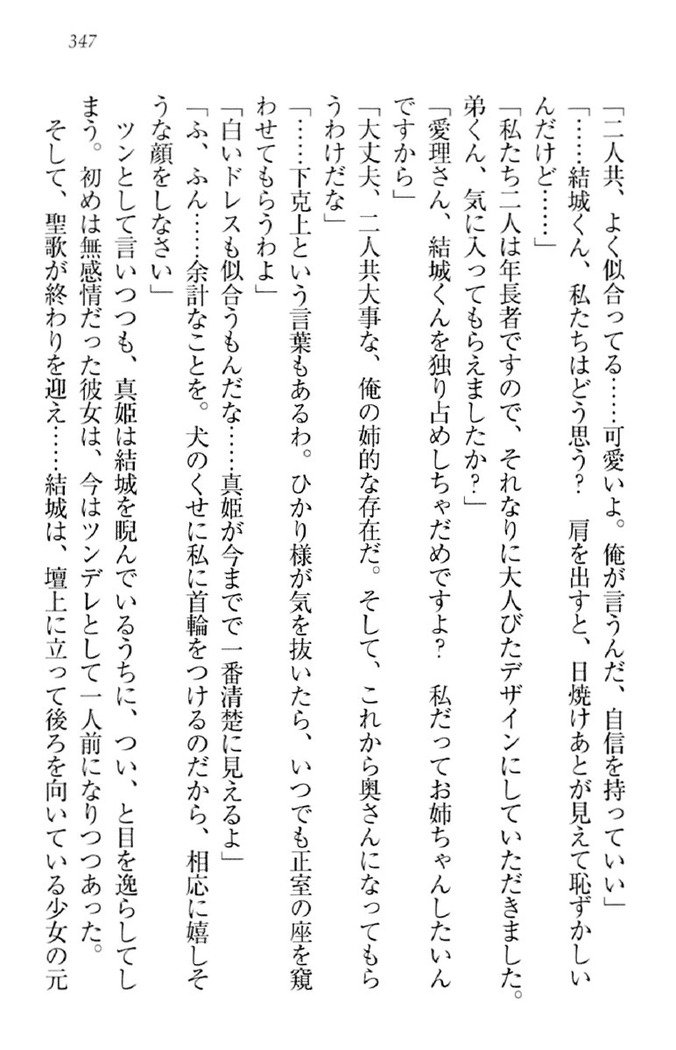 347
「二人共、よく似合ってる……可愛いよ。俺が言うんだ、自信を持っていい」
「……結城くん、私たちはどう思う？　肩を出すと、日焼けあとが見えて恥ずかしい
んだけど……」
「私たち二人は年長者ですので、それなりに大人びたデザインにしていただきました。
弟くん、気に入ってもらえましたか？」
「愛理さん、結城くんを独り占めしちゃだめですよ？　私だってお姉ちゃんしたいん
ですから」
「大丈夫、二人共大事な、俺の姉的な存在だ。そして、これから奥さんになってもら
うわけだな」
「……下克上という言葉もあるわ。ひかり様が気を抜いたら、いつでも正室の座を窺
わせてもらうわよ」
「白いドレスも似合うもんだな……真姫が今までで一番清楚に見えるよ」
「ふ、ふん……余計なことを。犬のくせに私に首輪をつけるのだから、相応に嬉しそ
うな顔をしなさい」
　ツンとして言いつつも、真姫は結城を睨んでいるうちに、つい、と目を逸らしてし
まう。初めは無感情だった彼女は、今はツンデレとして一人前になりつつあった。
　そして、聖歌が終わりを迎え……結城は、壇上に立って後ろを向いている少女の元